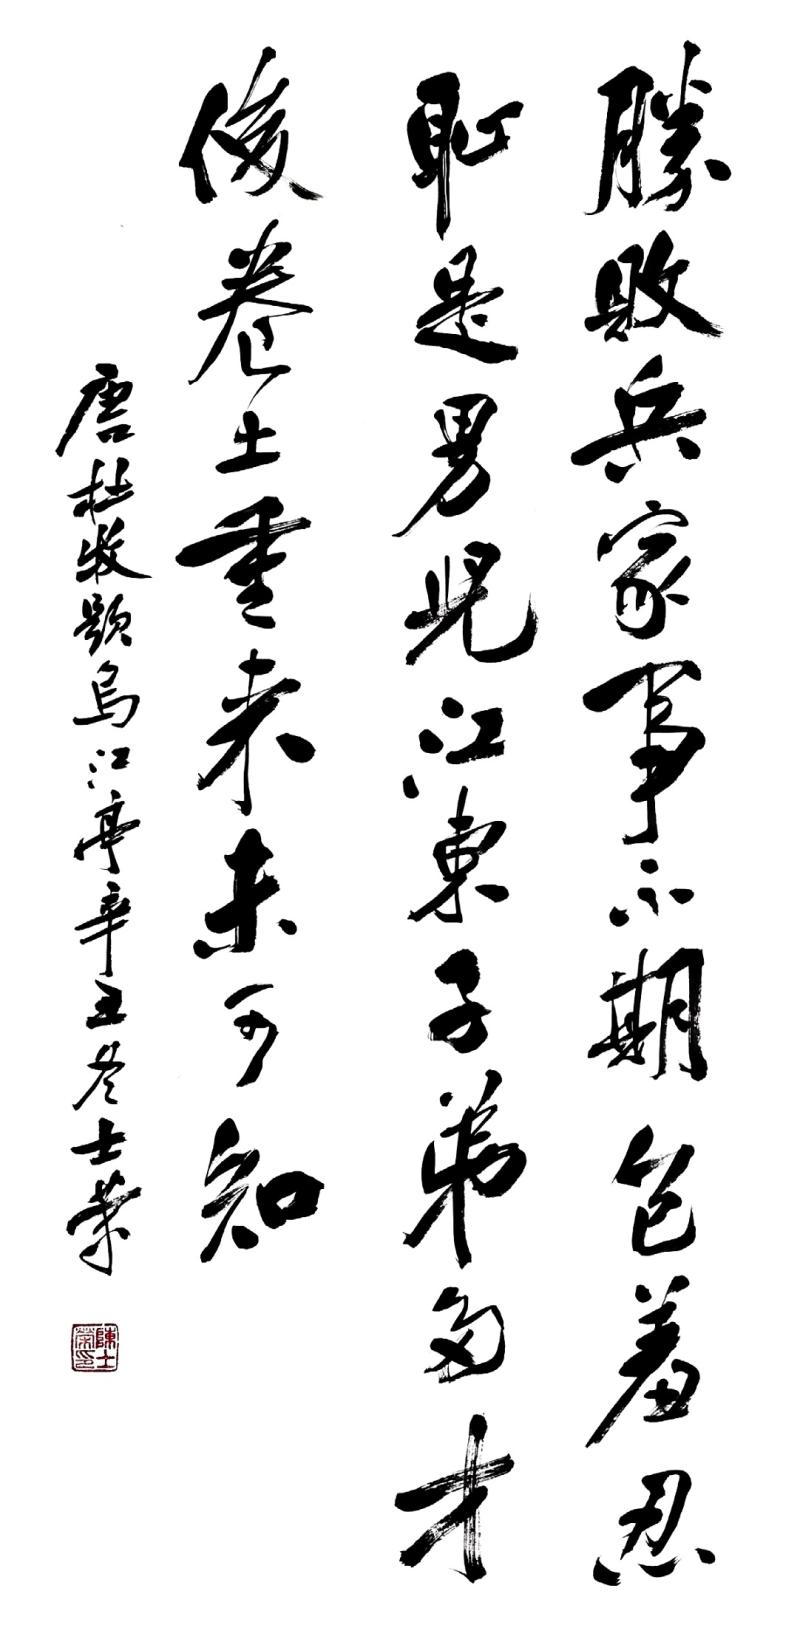 勝敗兵家事不期包羞忍
恥是男兒江東子弟多才
俊卷土重来未可知
唐杜牧题烏江亭辛丑冬士荣
陳士荣印